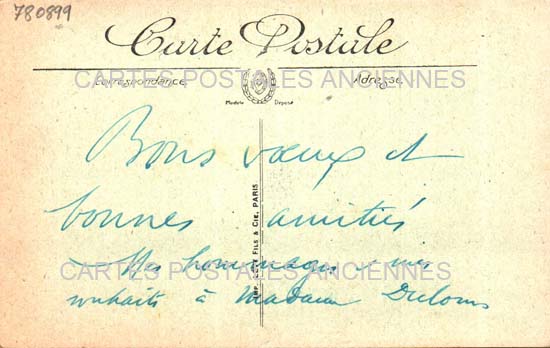 780899
Carte Postale
CARTES POSTALES ANCIENNES
Correspondance
Adresse
Modèle Déposé
Bons vœux et
bonnes amitiés
FILS & CIE, PARIS
hommages & mes
CARTES POSTALES ANCIENNES
souhaits à Madame